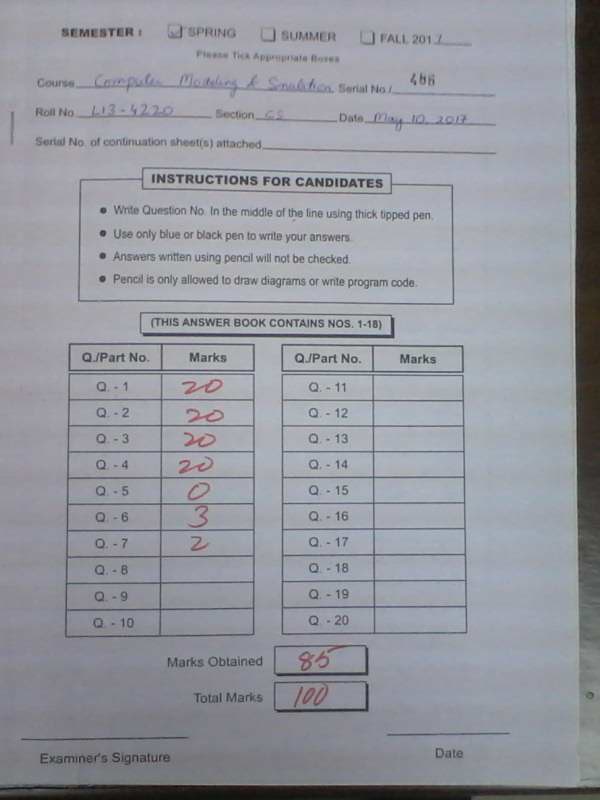 SEMESTER : SPRING SUMMER FALL 201
Please Tick Appropriate Boxes
Course Computer Modeling & Simulation Serial No./
Roll No. L13-4220 Section CS Date May 10, 2017
Serial No. of continuation sheet(s) attached
INSTRUCTIONS FOR CANDIDATES
● Write Question No. In the middle of the line using thick tipped pen.
● Use only blue or black pen to write your answers.
● Answers written using pencil will not be checked.
● Pencil is only allowed to draw diagrams or write program code.
(THIS ANSWER BOOK CONTAINS NOS. 1-18)
Q./Part No. Marks Q./Part No. Marks
Q. - 1 20 Q. - 11
Q. - 2 20 Q. - 12
Q. - 3 20 Q. - 13
Q. - 4 20 Q. - 14
Q. - 5 0 Q. - 15
Q. - 6 3 Q. - 16
Q. - 7 2 Q. - 17
Q. - 8 Q. - 18
Q. - 9 Q. - 19
Q. - 10 Q. - 20
Marks Obtained 85
Total Marks 100
Examiner's Signature Date